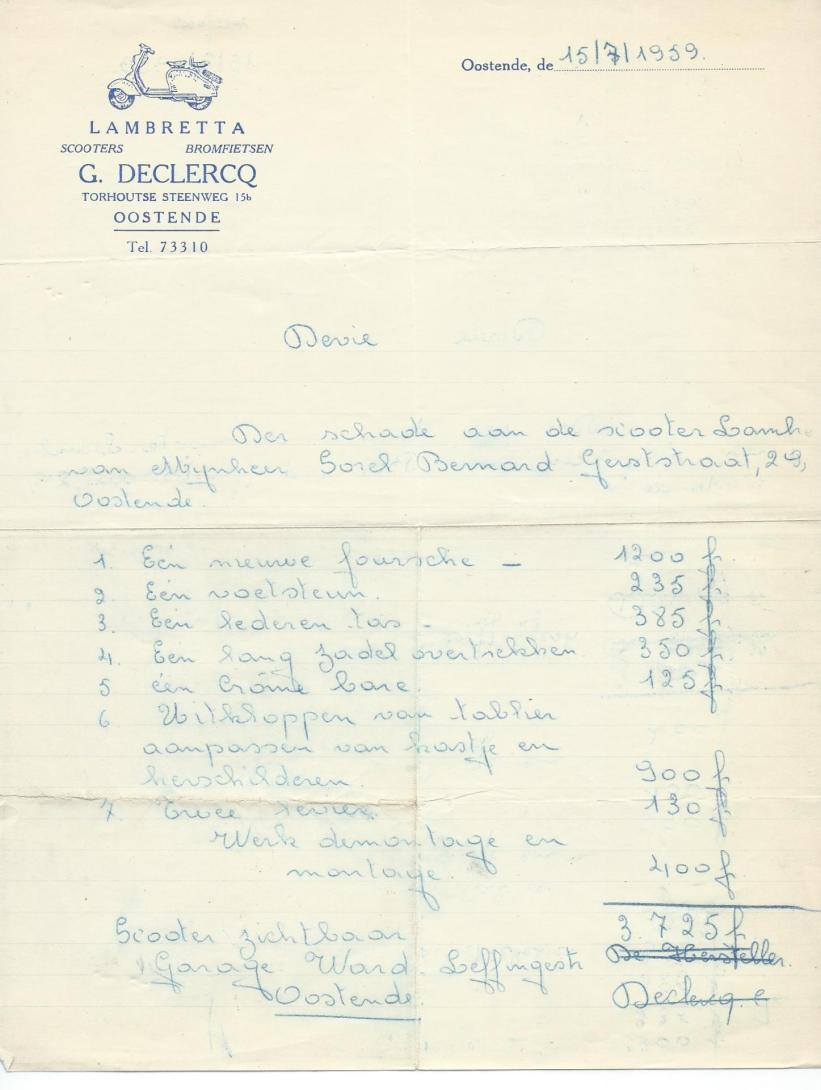 Oostende, de 15/7/1959.
LAMBRETTA
SCOOTERS BROMFIETSEN
G. DECLERCQ
TORHOUTSE STEENWEG 15b
OOSTENDE
Tel. 73310
Devie
Der schade aan de scooter Lambre
van Mijnheer Sorel Bernard Gerststraat, 29,
Oostende.
1. Eén nieuwe foursche — 1200 f.
2. Eén voetsteun. 235 f.
3. Eén lederen tas - 385 f.
4. Een lang zadel overtrekken 350 f.
5 één Crôme bare. 125 f.
6 Uitkloppen van tablier
aanpassen van kastje en
herschilderen. 900 f
7. Twee leviers. 130 f
Werk demontage en
montage. 400 f
3.725 f
Scooter zichtbaar
Garage Ward Leffingestr
Oostende.
De Hersteller.
Declercq. G